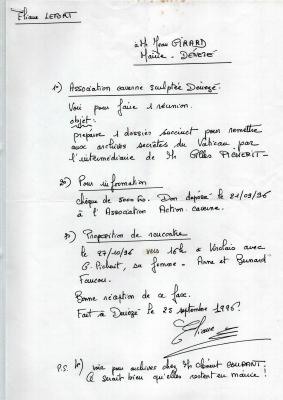 Eliane LEFORT
à Mr Jean GIRARD
Maire - DENEZÉ
1°) Association caverne sculptée Denezé.
Voir pour faire 1 réunion.
objet:
préparer 1 dossier succinct pour remettre
aux archives secrètes du Vatican par
l'intermédiaire de Mr Gilles PICHERIT-
2°) Pour information
chèque de 5000,00. Don déposé le 21/09/96
à l'Association Action caverne.
3°) Proposition de rencontre
le 27/10/96 vers 16h à avec
G. Picherit, sa femme - Anne et Bernard
Foucou.
Bonne réception de ce fax.
Fait à Denezé le 25 septembre 1996.
Eliane
P.S. 4°) voir pour archives chez Mr Clément
Ce serait bien qu'elles restent en mairie!